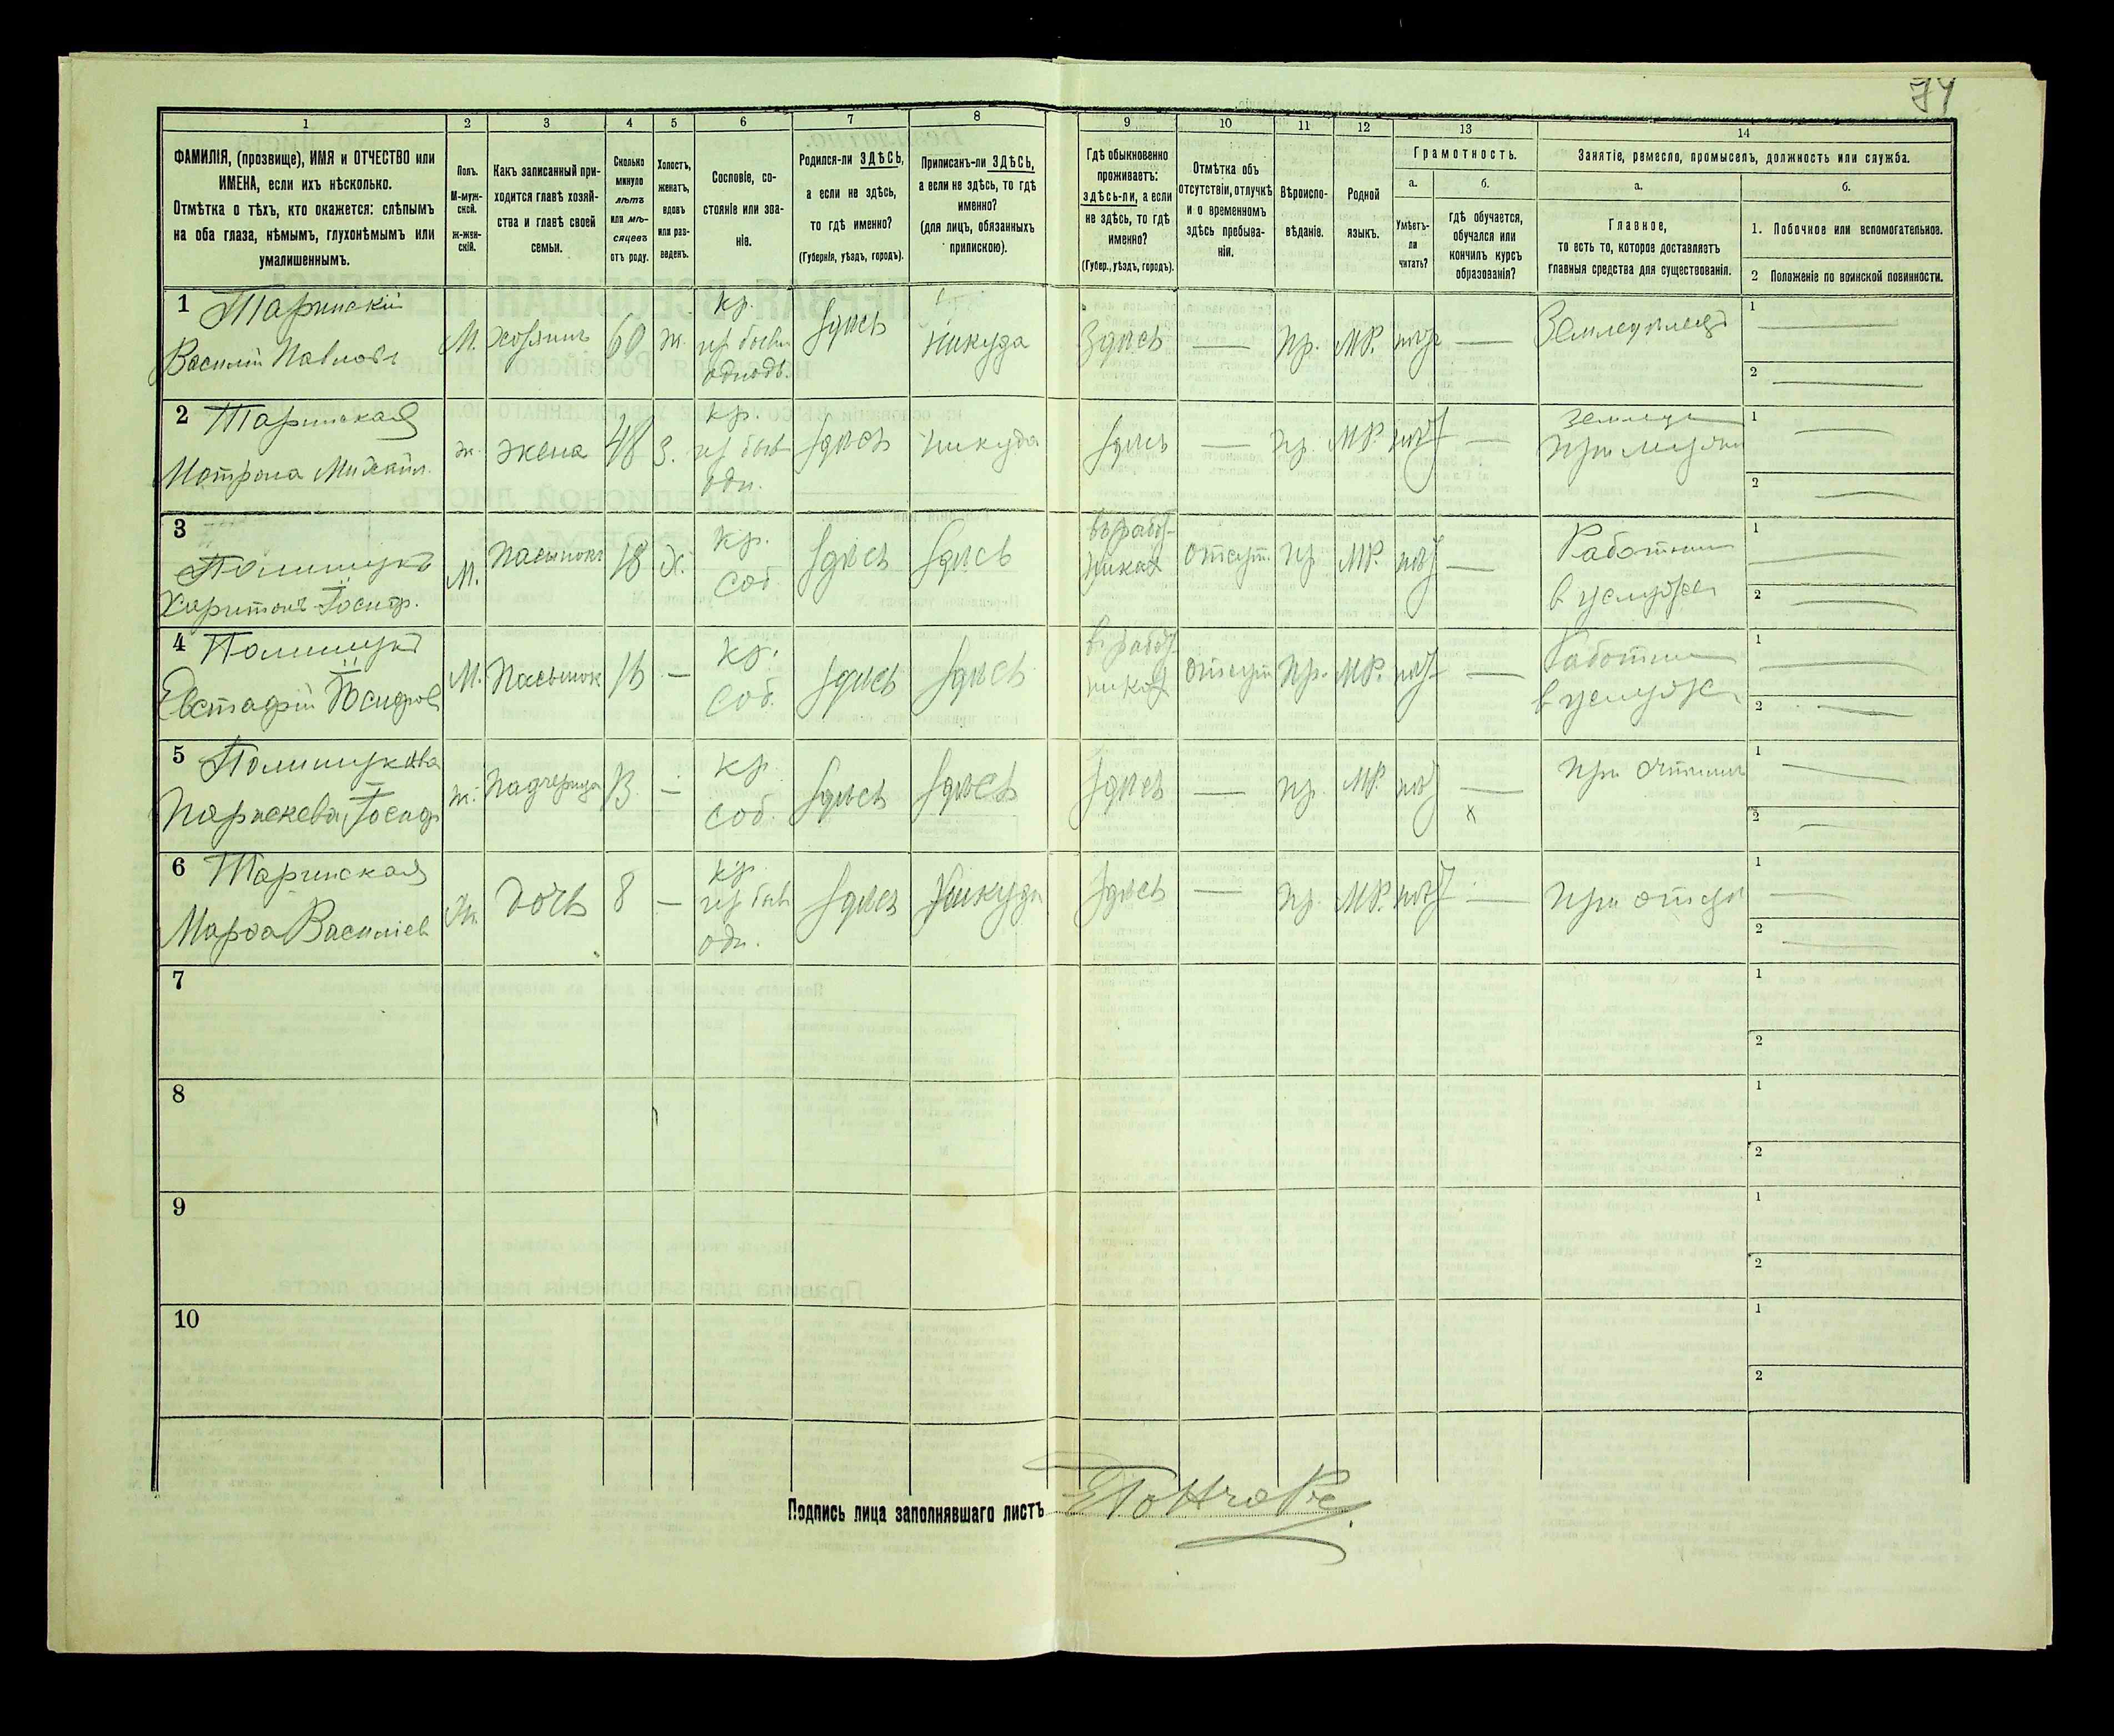 74
1 2 3 4 5 6 7 8 9 10 11 12 13 14
ФАМИЛІЯ, (прозвище), ИМЯ и ОТЧЕСТВО или
ИМЕНА, если ихъ нѣсколько.
Отмѣтка о тѣхъ, кто окажется: слѣпымъ
на оба глаза, нѣмымъ, глухонѣмымъ или
умалишеннымъ.
Полъ.
М-муж-
ской.
Ж-жен-
скій.
Какъ записанный при-
ходится главѣ хозяй-
ства и главѣ своей
семьи.
Сколько
минуло
лѣтъ
или мѣ-
сяцевъ
отъ роду.
Холостъ,
женатъ,
вдовъ
или раз-
веденъ.
Сословіе, со-
стояніе или зва-
ніе.
Родился-ли ЗДѢСЬ,
а если не здѣсь,
то гдѣ именно?
(Губернія, уѣздъ, городъ).
Приписанъ-ли ЗДѢСЬ,
а если не здѣсь, то гдѣ
именно?
(для лицъ, обязанныхъ
припискою).
Гдѣ обыкновенно
проживаетъ:
здѣсь-ли, а если
не здѣсь, то гдѣ
именно?
(Губер., уѣздъ, городъ).
Отмѣтка объ
отсутствіи, отлучкѣ
и о временномъ
здѣсь пребыва-
ніи.
Вѣроиспо-
вѣданіе.
Родной
языкъ.
Грамотность.
а.
Умѣетъ-
ли
читать?
б.
гдѣ обучается,
обучался или
кончилъ курсъ
образованія?
Занятіе, ремесло, промыселъ, должность или служба.
а.
Главное,
то есть то, которое доставляетъ
главныя средства для существованія.
б.
1. Побочное или вспомогательное.
2 Положеніе по воинской повинности.
1
Василій Павлов
М. хозяинъ 60 ж. кр.
из бывш
однодв.
здѣсь никуда Здѣсь — пр. МР. нѣт —
1 —
2 —
2
Матрона Михайл.
ж. жена 48 З. кр.
из бывш
одн.
здѣсь никуда здѣсь — пр. МР. нѣт —
при мужѣ
1 —
2 —
3
Харитонъ
М. Пасынокъ 18 Х. кр.
соб
здѣсь здѣсь отсут. пр МР. нѣт —
Работник
в услуж
1 —
2 —
4
Евстафій
М. Пасынок 16 — кр.
соб.
здѣсь здѣсь отсут пр. МР. нѣт —
Работник
в услуж
1 —
2 —
5
Параскева
ж. Падчерица 13 — кр
соб.
здѣсь здѣсь здѣсь — пр. МР. нѣт —
х
при отчимѣ
1 —
2 —
6
Марфа Василіев
ж. дочь 8 — кр
из бывш
одн.
здѣсь никуда здѣсь — пр. МР. нѣт —
при отцѣ
1 —
2 —
7
1
2
8
1
2
9
1
2
10
1
2
Подпись лица заполнявшаго листъ